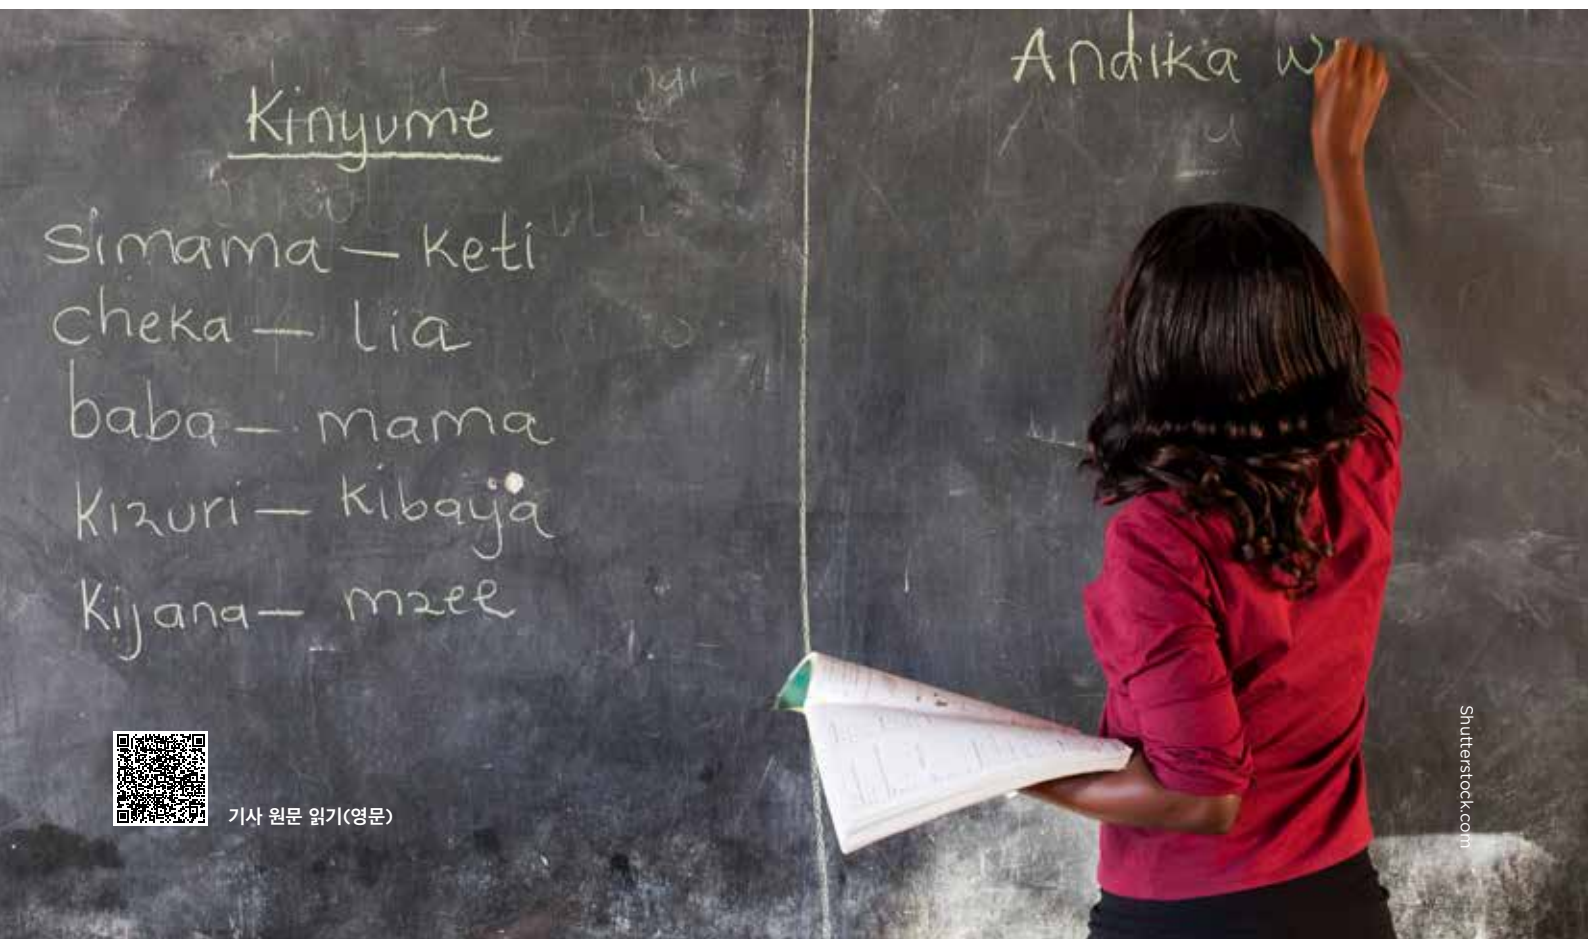 Kinyume
simama – keti
cheka – lia
baba – mama
kizuri – kibaya
Kijana – mzee
Andika
기사 원문 읽기(영문)
Shutterstock.com